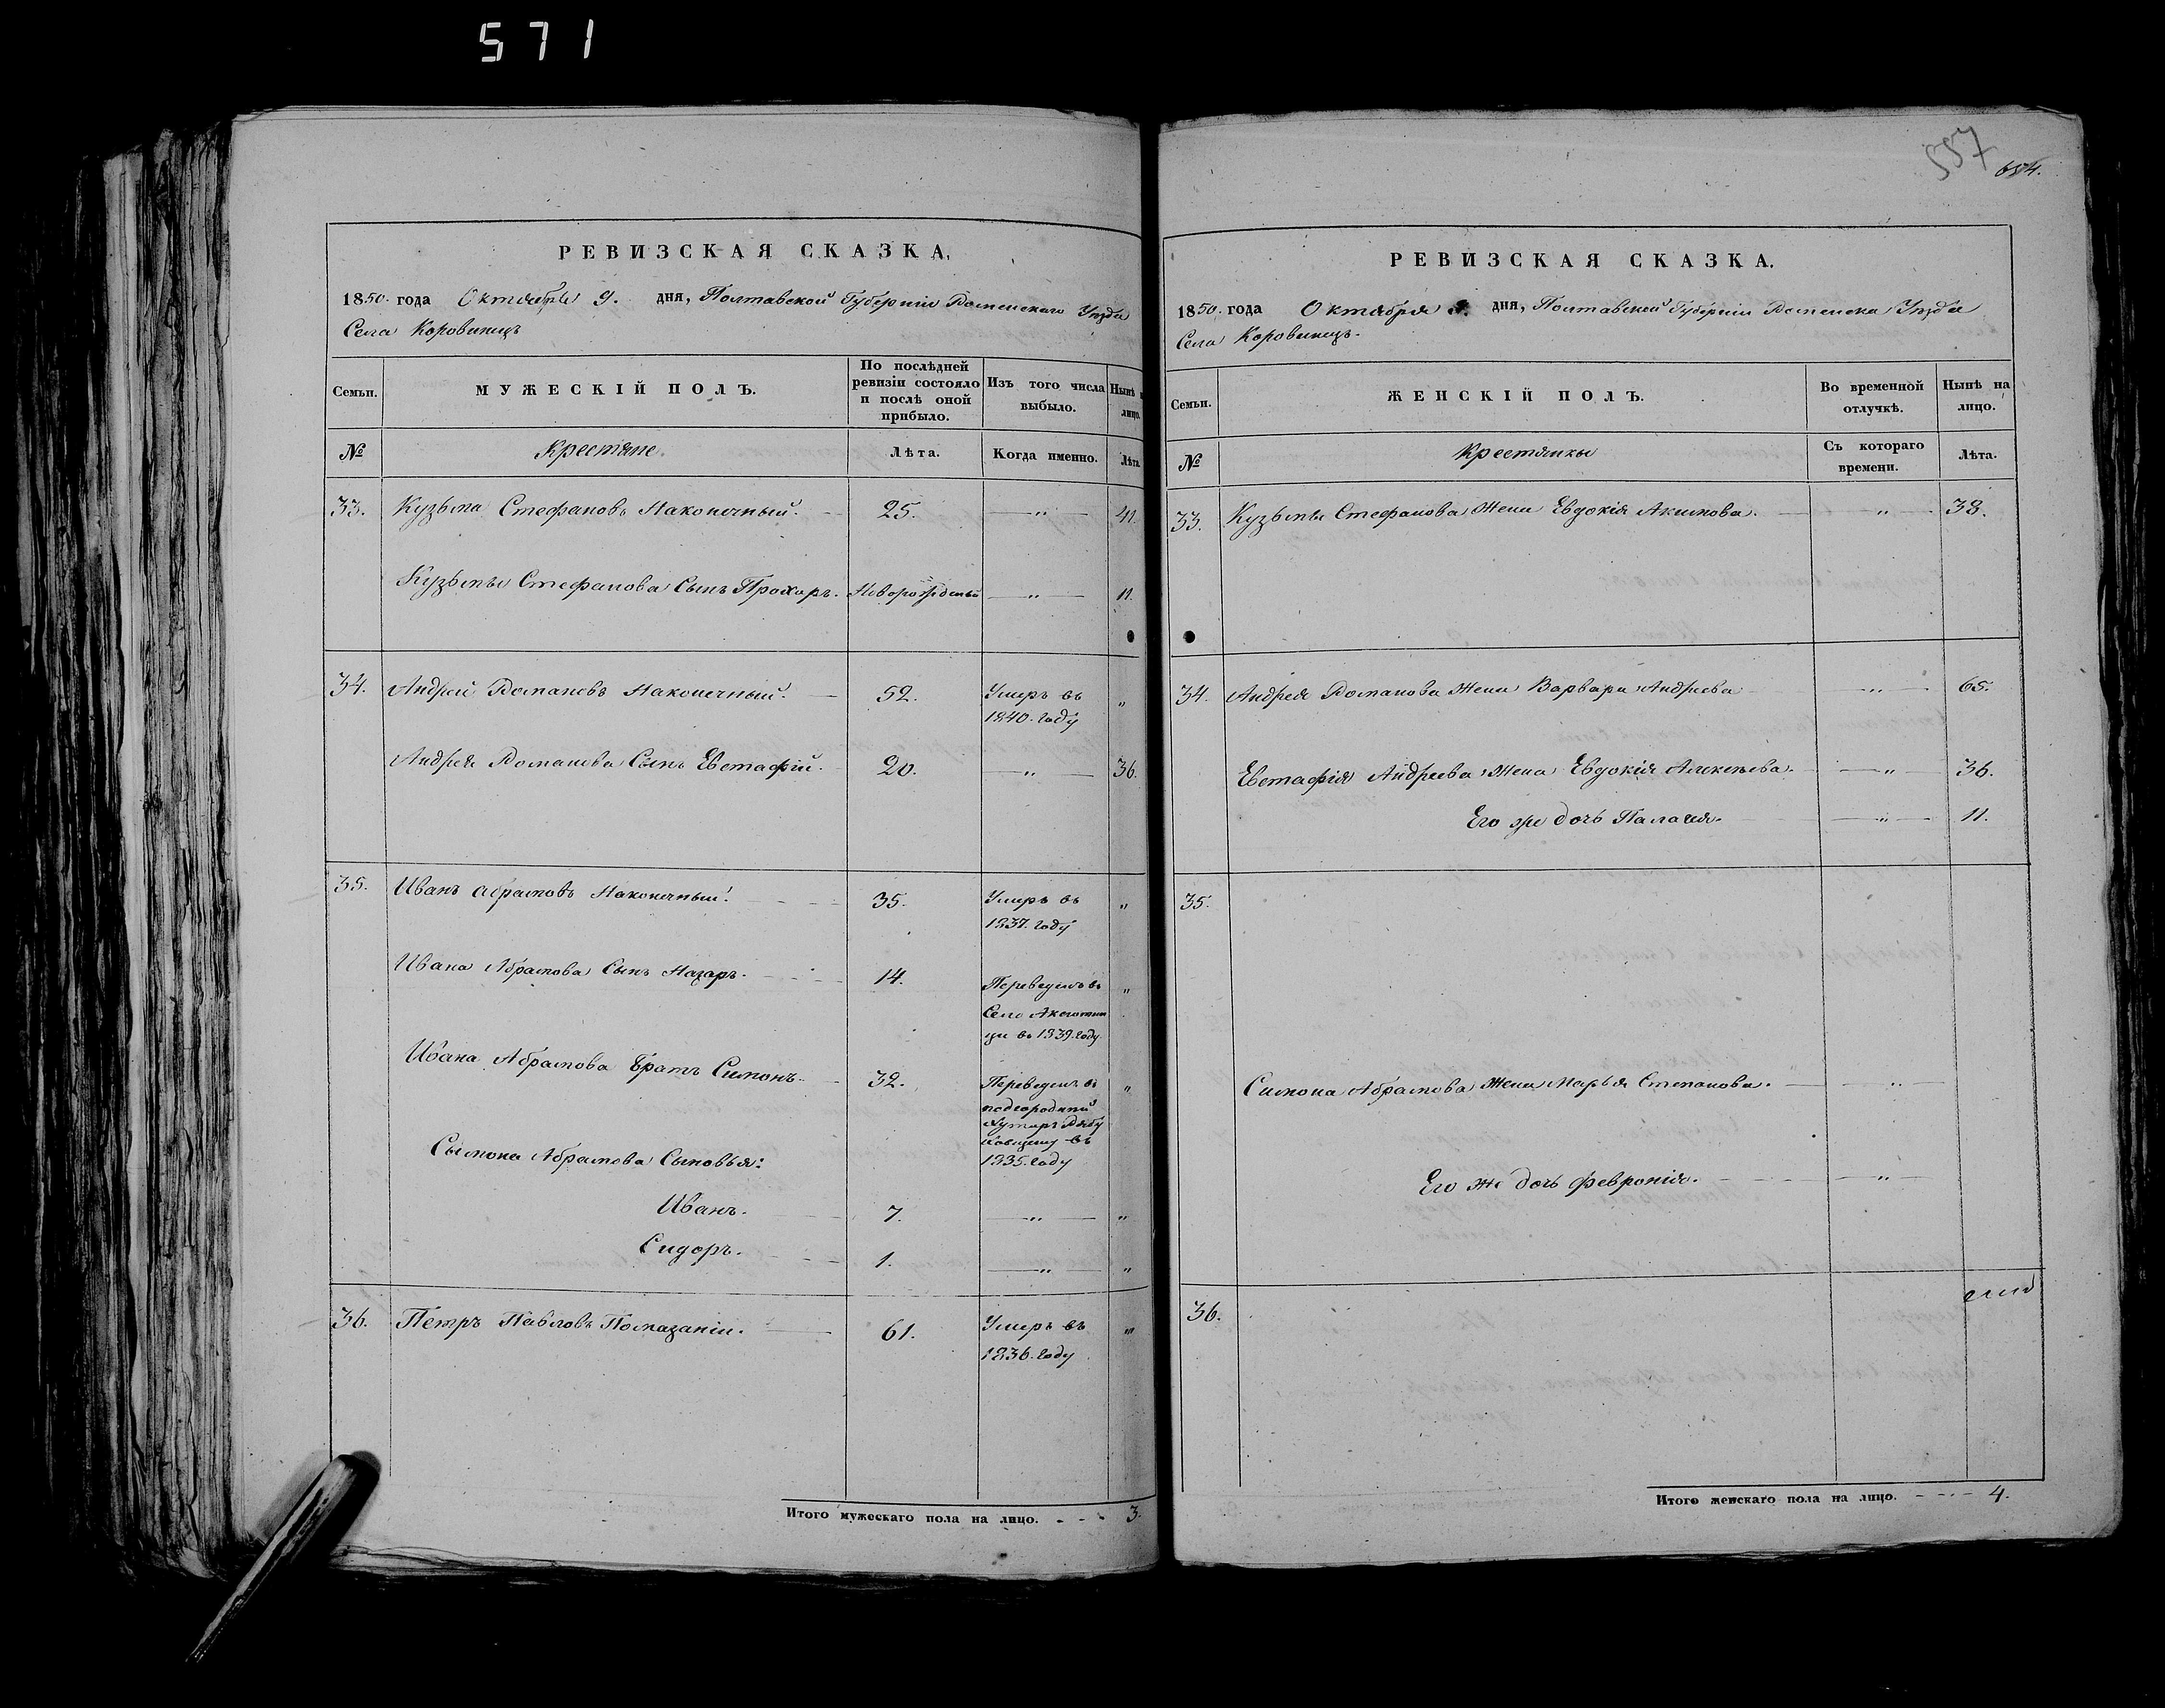 571
РЕВИЗСКАЯ СКАЗКА.
1850. года Октября 9. дня, Полтавской Губерніи Роменскаго Уѣзда
Села Коровинецъ
Семьи.
МУЖЕСКІЙ ПОЛЪ.
По послѣдней ревизіи состояло и послѣ оной прибыло.
Изъ того числа выбыло.
Нынѣ на лицо.
№
Крестяне.
Лѣта.
Когда именно.
Лѣта.
33. Кузьма Стефановъ Наконечный. 25. " 41.
Кузьмы Стефанова Сынъ Прохоръ. Новорожденый " 11.
34. Андрей Романовъ Наконечный. 52. Умеръ въ "
1840. году
Андрея Романова Сынъ Евстафій. 20. " 36.
35. Иванъ Абрамовъ Наконечный. 35. Умеръ въ "
1837. году
Ивана Абрамова Сынъ Назаръ. 14. Переведенъ въ "
Село
въ 1839. году
Ивана Абрамова Братъ Симонъ. 32. Переведенъ въ "
подгородній
Хуторъ
въ
1835. году
Симона Абрамова Сыновья:
Иванъ. 7. " "
Сидоръ. 1. " "
36. Петръ Павловъ 61. Умеръ въ "
1836. году
Итого мужескаго пола на лицо. 3.
557
654.
РЕВИЗСКАЯ СКАЗКА.
1850. года Октября 9. дня, Полтавской Губерніи Роменска Уѣзда
Села Коровинецъ.
Семьи.
ЖЕНСКІЙ ПОЛЪ.
Во временной отлучкѣ.
Нынѣ на лицо.
№
Крестянки
Съ котораго времени.
Лѣта.
33. Кузьмы Стефанова Жена Евдокія Акимова. " 38.
34. Андрея Романова Жена Варвара Андреева " 65.
Евстафія Андреева Жена Евдокія Алексѣева. " 36.
Его же дочь Палагея. " 11.
35.
Симона Абрамова Жена Марья Степанова. "
Его же дочь Февронія. "
36.
Итого женскаго пола на лицо. 4.